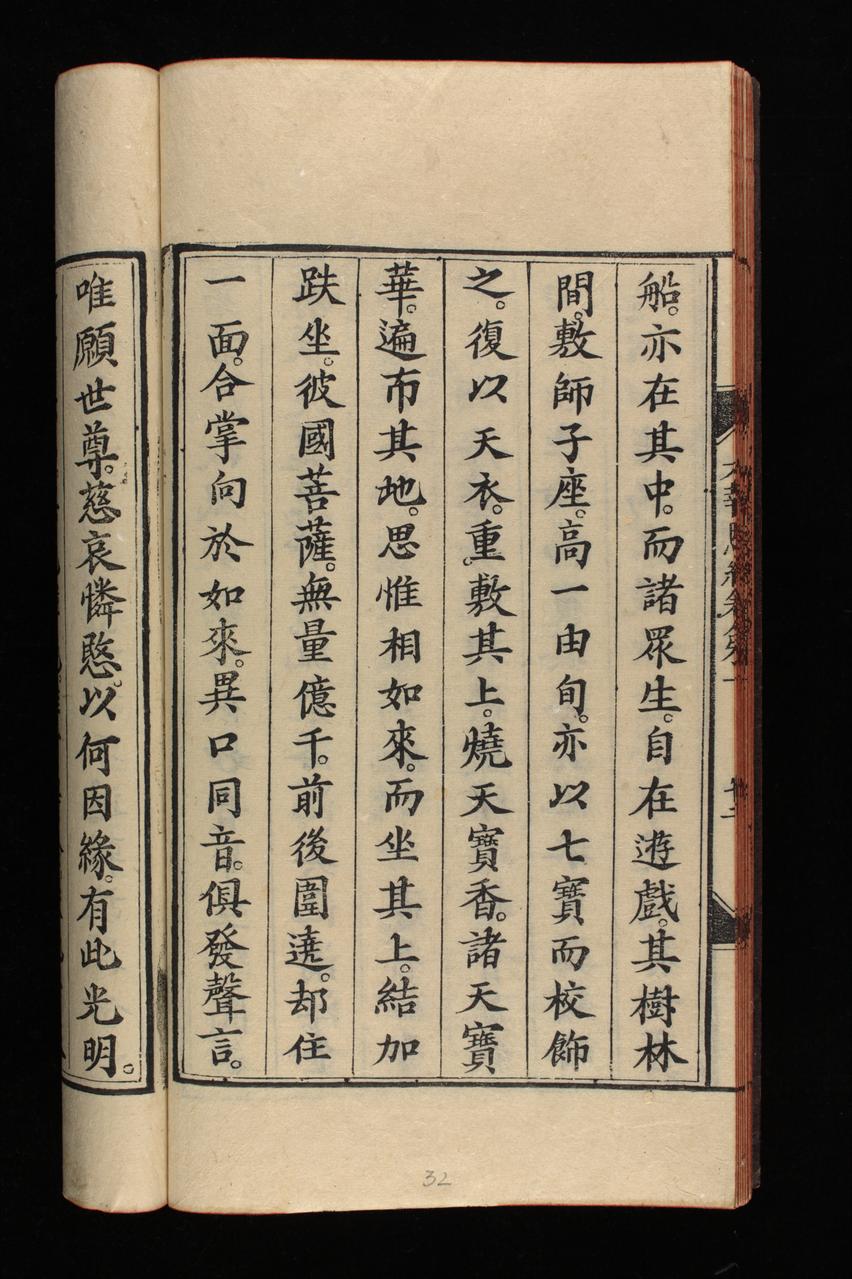 船。亦在其中。而諸眾生。自在遊戲。其樹林
間。敷師子座。高一由旬。亦以七寶而校飾
之。復以天衣。重敷其上。燒天寶香。諸天寶
華。遍布其地。思惟相如來。而坐其上。結加
趺坐。彼國菩薩。無量億千。前後圍遶。却住
一面。合掌向於如來。異口同音。俱發聲言。
唯願世尊。慈哀憐愍。以何因緣。有此光明。
32